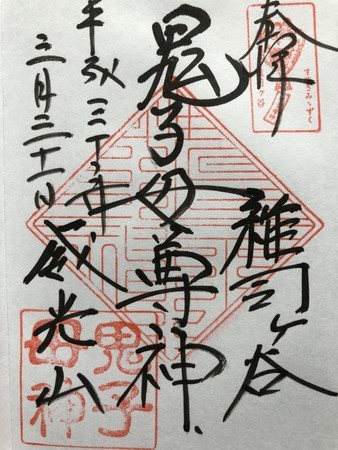 奉拝
雑司ヶ谷
鬼子母尊神
威光山
平成三十一年
三月三十一日
すすきみゝずく
鬼子
母神